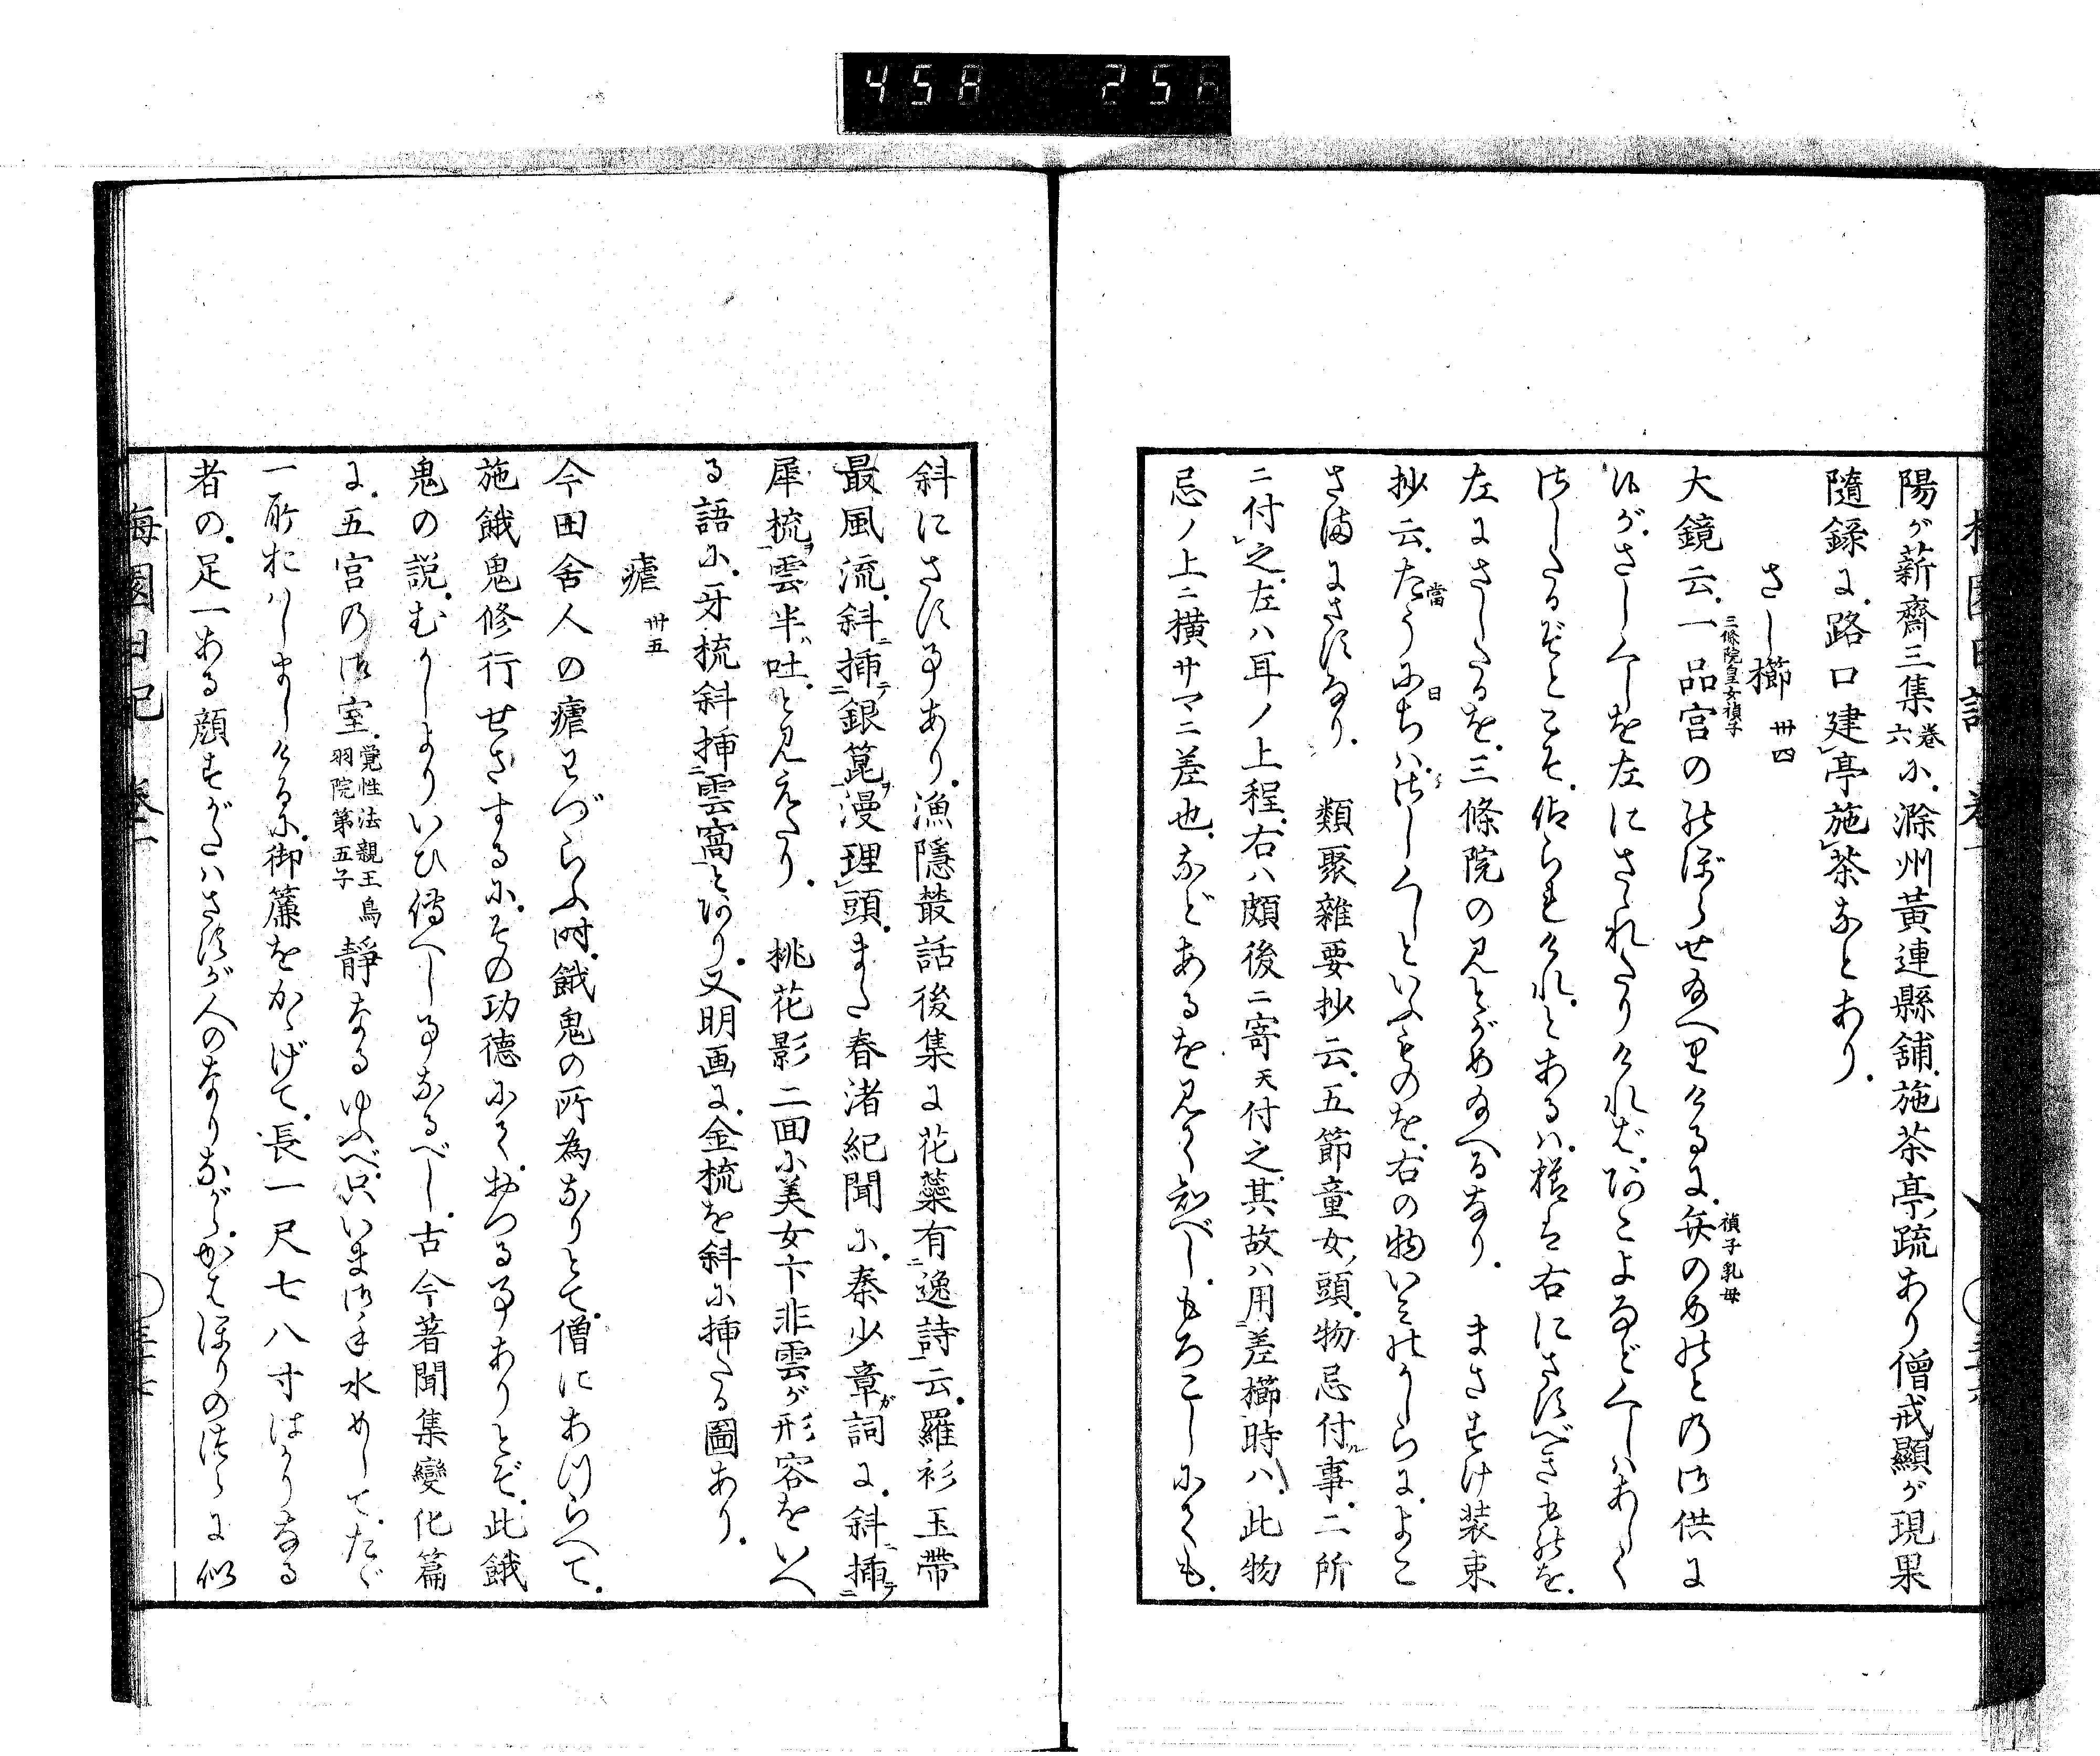 458 256
陽ガ薪齋三集巻六に。滁州黄連縣舗。施茶亭疏あり僧戒顯ガ現果
隨録に。路口建亭施茶なとあり。
さし櫛 卅四
大鏡云。一品宮三條院皇女禎子ののぼらせ給へりけるに。弁のめのと禎子乳母の御供に
候が。さしぐしを左にさゝれたりけれバ。あこよなどくしハあしく
さしたるぞとこそ。仰られけれ。とあるハ。櫛ハ右にさすべきものを。
左にさしたるを。三條院の見とがめ給へるなり。 まさすけ装束
抄云。たう當にち日ハ。さしくしといふものを。右の物いみのかしらに。よこ
さまにさすなり。 類聚雜要抄云。五節童女頭。物忌付事。二所
ニ付之。左ハ耳ノ上程。右ハ頗後ニ寄天付之。其故ハ用差櫛時ハ。此物
忌ノ上ニ横サマニ差也。などあるを見て知べし。もろこしにても。
斜にさす事あり。漁隱叢話後集に花蘂有逸詩云。羅衫玉帶
最風流。斜挿銀篦漫理頭。また春渚紀聞に。秦少章ガ詞に。斜挿
犀梳雲半吐。と見えたり。 桃花影二回に美女卞非雲ガ形容をいへ
る語に。牙梳斜挿雲窩とあり。又明画に。金梳を斜に挿たる圖あり。
瘧 卅五
今田舎人の瘧わづらふ時。餓鬼の所為なりとて。僧にあつらへて。
施餓鬼修行せさするに。その功徳にて。おつる事ありとぞ。此餓
鬼の説。むかしよりいひ傳へし事なるべし。古今著聞集變化篇
に。五宮の御室。覚性法親王鳥羽院第五子静なるゆふべ。只いま御手水めして。たゞ
一所おハしましけるに。御簾をかゝげて。長一尺七八寸はかりなる
者の。足一ある顔すがたハさすが人のなりながら。かはほりのつらに似
梅園日記 巻一